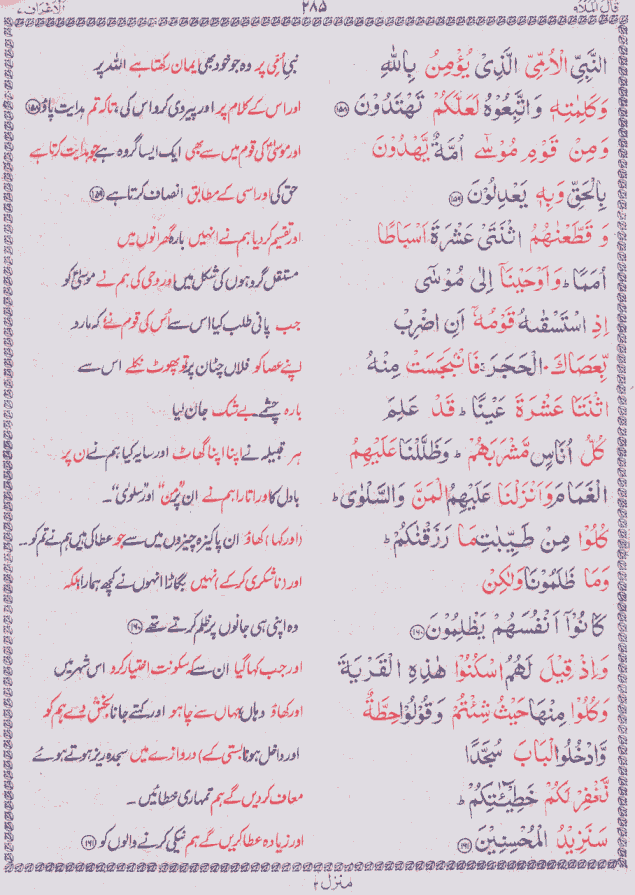 قال الملاء ۹
۲۸۵
الاعراف ۷
النَّبِيِّ الْاُمِّيِّ الَّذِيْ يُؤْمِنُ بِاللّٰهِ
نبی اُمّی پر وہ جو خود بھی ایمان رکھتا ہے اللہ پر
وَكَلِمٰتِهٖ وَاتَّبِعُوْهُ لَعَلَّكُمْ تَهْتَدُوْنَ ﴿۱۵۸﴾
اور اس کے کلام پر اور پیروی کرو اس کی، تاکہ تم ہدایت پاؤ ﴿۱۵۸﴾
وَمِنْ قَوْمِ مُوْسٰٓى اُمَّةٌ يَّهْدُوْنَ
اور موسیٰؑ کی قوم میں سے بھی ایک ایسا گروہ ہے جو ہدایت کرتا ہے
بِالْحَقِّ وَبِهٖ يَعْدِلُوْنَ ﴿۱۵۹﴾
حق کی اور اسی کے مطابق انصاف کرتا ہے ﴿۱۵۹﴾
وَ قَطَّعْنٰهُمُ اثْنَتَيْ عَشْرَةَ اَسْبَاطًا
اور تقسیم کردیا ہم نے انہیں بارہ گھرانوں میں
اُمَمًا ؕ وَاَوْحَيْنَآ اِلٰى مُوْسٰٓى
مستقل گروہوں کی شکل میں اور وحی کی ہم نے موسیٰؑ کو
اِذِ اسْتَسْقٰىهُ قَوْمُهٗٓ اَنِ اضْرِبْ
جب پانی طلب کیا اس سے اُس کی قوم نے کہ مارو
بِّعَصَاكَ الْحَجَرَ ۚ فَانْۢبَجَسَتْ مِنْهُ
اپنے عصا کو فلاں چٹان پر تو پھوٹ نکلے اس سے
اثْنَتَا عَشْرَةَ عَيْنًا ؕ قَدْ عَلِمَ
بارہ چشمے بے شک جان لیا
كُلُّ اُنَاسٍ مَّشْرَبَهُمْ ؕ وَظَلَّلْنَا عَلَيْهِمُ
ہر قبیلہ نے اپنا اپنا گھاٹ اور سایہ کیا ہم نے ان پر
الْغَمَامَ وَاَنْزَلْنَا عَلَيْهِمُ الْمَنَّ وَالسَّلْوٰى ؕ
بادل کا اور اتارا ہم نے ان پر ”من“ اور ”سلویٰ“۔
كُلُوْا مِنْ طَيِّبٰتِ مَا رَزَقْنٰكُمْ ؕ
(اور کہا) کھاؤ ان پاکیزہ چیزوں میں سے جو عطا کی ہیں ہم نے تم کو۔۔
وَمَا ظَلَمُوْنَا وَلٰكِنْ
اور (ناشکری کرکے) نہیں بگاڑا انہوں نے کچھ ہمارا بلکہ
كَانُوْٓا اَنْفُسَهُمْ يَظْلِمُوْنَ ﴿۱۶۰﴾
وہ اپنی ہی جانوں پر ظلم کرتے تھے ﴿۱۶۰﴾
وَاِذْ قِيْلَ لَهُمُ اسْكُنُوْا هٰذِهِ الْقَرْيَةَ
اور جب کہا گیا ان سے کہ سکونت اختیار کرو اس شہر میں
وَكُلُوْا مِنْهَا حَيْثُ شِئْتُمْ وَقُوْلُوْا حِطَّةٌ
اور کھاؤ وہاں جہاں سے چاہو اور کہتے جانا بخش دے ہم کو
وَّادْخُلُوا الْبَابَ سُجَّدًا
اور داخل ہونا (بستی کے) دروازے میں سجدہ ریز ہوتے ہوئے
نَّغْفِرْ لَكُمْ خَطِيْٓـٰٔتِكُمْ ؕ
معاف کردیں گے ہم تمہاری خطائیں۔
سَنَزِيْدُ الْمُحْسِنِيْنَ ﴿۱۶۱﴾
اور زیادہ عطا کریں گے ہم نیکی کرنے والوں کو ﴿۱۶۱﴾
منزل ۲